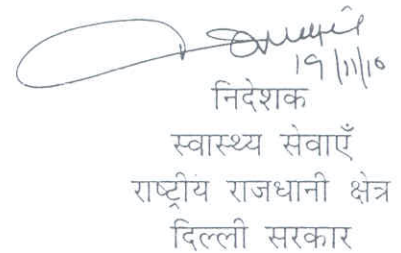 19/11/10
निदेशक
स्वास्थ्य सेवाएँ
राष्ट्रीय राजधानी क्षेत्र
दिल्ली सरकार